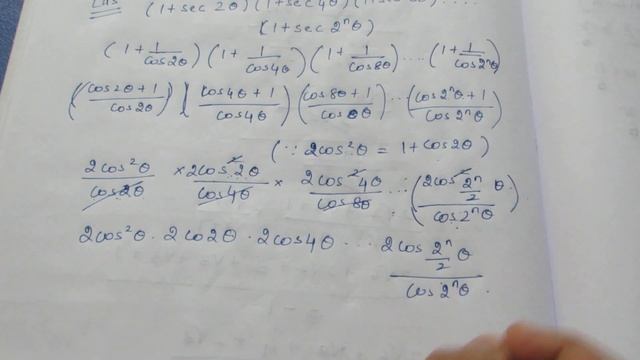 LHS (1+sec 2θ)(1+sec4θ)(1+sec 8θ)...
(1+sec 2ⁿθ)
(1+1/cos2θ)(1+1/cos4θ)(1+1/cos8θ)....(1+1/cos2ⁿθ)
((cos2θ+1)/cos2θ)((cos4θ+1)/cos4θ)((cos8θ+1)/cos8θ)...((cos2ⁿθ+1)/cos2ⁿθ)
(∵ 2cos²θ = 1+cos2θ)
2cos²θ/cos2θ × 2cos²2θ/cos4θ × 2cos²4θ/cos8θ ...(2cos² 2ⁿ/2 θ/cos2ⁿθ)
2cos²θ · 2co2θ · 2cos4θ ... 2cos 2ⁿ/2 θ/cos2ⁿθ.